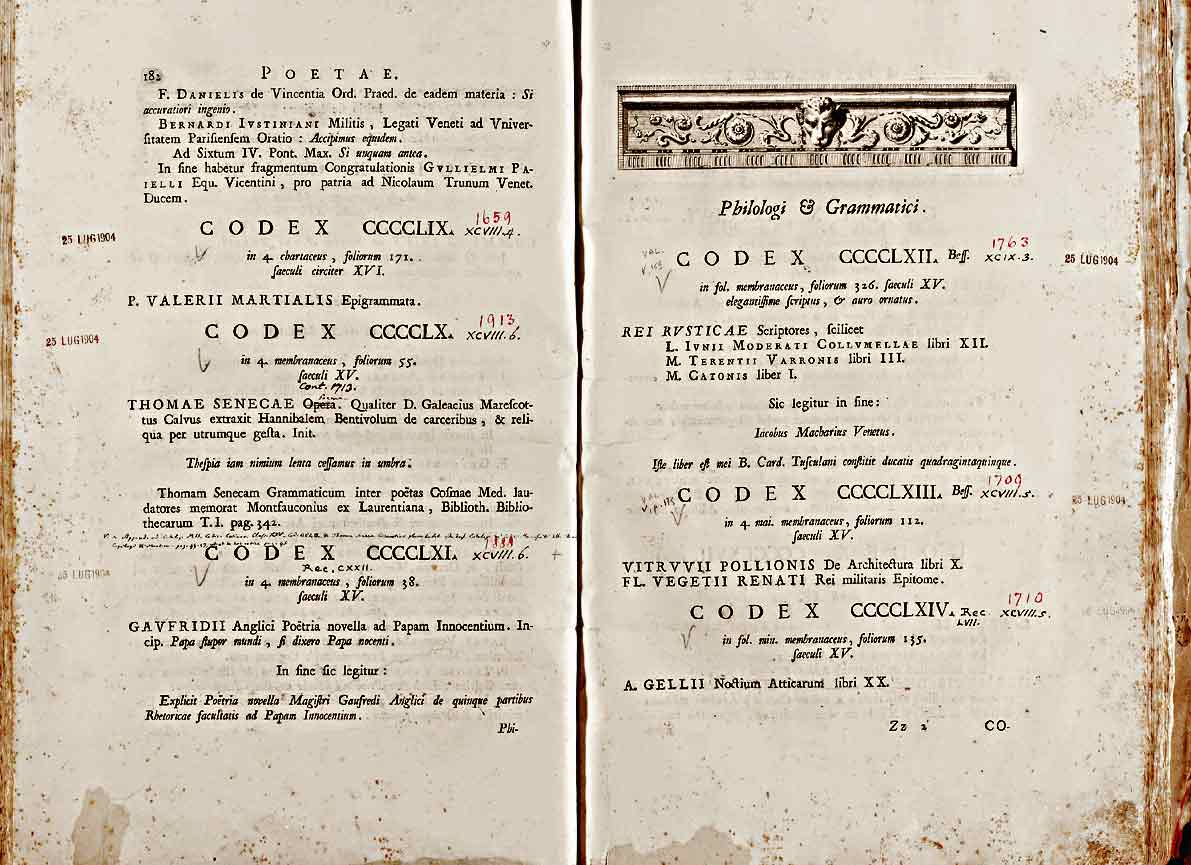 182 POETAE.
F. DANIELIS de Vincentia Ord. Praed. de eadem materia : Si
accuratiori ingenio.
BERNARDI IVSTINIANI Militis , Legati Veneti ad Vniver-
sitatem Parisiensem Oratio : Accipimus equidem.
Ad Sixtum IV. Pont. Max. Si unquam antea.
In fine habetur fragmentum Congratulationis GVLLIELMI PA-
IELLI Equ. Vicentini , pro patria ad Nicolaum Trunum Venet.
Ducem.
1659
CODEX CCCCLIX. XCVIII.4.
25 LUG 1904
in 4. chartaceus , foliorum 171.
saeculi circiter XVI.
P. VALERII MARTIALIS Epigrammata.
1913
CODEX CCCCLX. XCVIII.6.
25 LUG 1904
in 4. membranaceus , foliorum 55.
saeculi XV.
Cont. 1713.
THOMAE SENECAE Opera. Qualiter D. Galeacius Marescot-
tus Calvus extraxit Hannibalem Bentivolum de carceribus , & reli-
qua per utrumque gesta. Init.
Thespia iam nimium lenta cessamus in umbra.
Thomam Senecam Grammaticum inter poëtas Cosmae Med. lau-
datores memorat Montfauconius ex Laurentiana , Biblioth. Biblio-
thecarum T. I. pag. 342.
CODEX CCCCLXI. XCVIII.6.
Rec. CXXII.
25 LUG 1904
in 4. membranaceus , foliorum 38.
saeculi XV.
GAVFRIDII Anglici Poëtria novella ad Papam Innocentium. In-
cip. Papa stupor mundi , si dixero Papa nocenti.
In fine sic legitur :
Explicit Poëtria novella Magistri Gaufredi Anglici de quinque partibus
Rhetoricae facultatis ad Papam Innocentium.
Phi-
Philologi & Grammatici.
1763
CODEX CCCCLXII. Bess. XCIX.3.
25 LUG 1904
in fol. membranaceus , foliorum 326. saeculi XV.
elegantissime scriptus , & auro ornatus.
REI RVSTICAE Scriptores , scilicet
L. IVNII MODERATI COLLVMELLAE libri XII.
M. TERENTII VARRONIS libri III.
M. CATONIS liber I.
Sic legitur in fine :
Iacobus Macharius Venetus.
Iste liber est mei B. Card. Tusculani constitit ducatis quadragintaquinque.
1709
CODEX CCCCLXIII. Bess. XCVIII.5.
25 LUG 1904
in 4. mai. membranaceus , foliorum 112.
saeculi XV.
VITRVVII POLLIONIS De Architectura libri X.
FL. VEGETII RENATI Rei militaris Epitome.
1710
CODEX CCCCLXIV. Rec. XCVIII.5.
LVII.
25 LUG 1904
in fol. min. membranaceus , foliorum 135.
saeculi XV.
A. GELLII Noctium Atticarum libri XX.
Zz 2 CO-